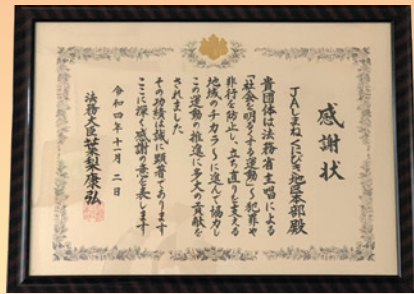 感謝状
JAしまねくにびき地区本部殿
貴団体は法務省主唱による
「社会を明るくする運動」～犯罪や
非行を防止し、立ち直りを支える
地域のチカラ～に進んで協力し
この運動の推進に多大の貢献を
されました
その功績は誠に顕著であります
ここに深く感謝の意を表します
令和四年十一月二日
法務大臣葉梨康弘